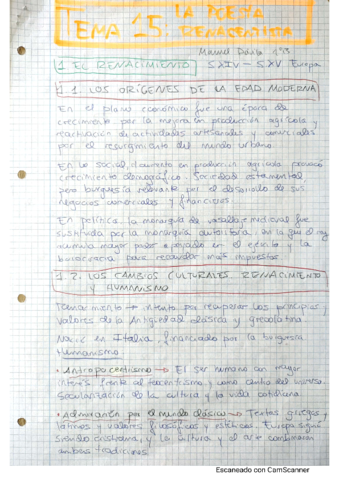 TEMA 15. LA POESÍA
RENACENTISTA
Manuel nº13
1 EL RENACIMIENTO SXIV – SXV Europa
1.1. LOS ORÍGENES DE LA EDAD MODERNA
En el plano económico fue una época de
crecimiento por la mejora en producción agrícola y
reactivación de actividades artesanales y comerciales
por el resurgimiento del mundo urbano
En lo social, el aumento en producción agrícola provocó
crecimiento demográfico. Sociedad estamental
pero burguesía relevante por el desarrollo de sus
negocios comerciales y financieros.
En política, la monarquía de vasallaje medieval fue
sustituida por la monarquía autoritaria, en la que el rey
acumula mayor poder apoyado en el ejército y la
burocracia para recaudar más impuestos
1.2. LOS CAMBIOS CULTURALES. RENACIMIENTO
Y HUMANISMO
Renacimiento → intento por recuperar los principios y
valores de la Antigüedad clásica y grecolatina
Nació en Italia, financiado por la burguesía
Humanismo
· Antropocentrismo → El ser humano con mayor
interés frente al teocentrismo y como centro del universo.
Secularización de la cultura y la vida cotidiana
· Admiración por el mundo clásico → Textos griegos y
latinos y valores filosóficos y estéticos. Europa siguió
siendo cristiana, y la cultura y el arte combinaron
ambas tradiciones
Escaneado con CamScanner